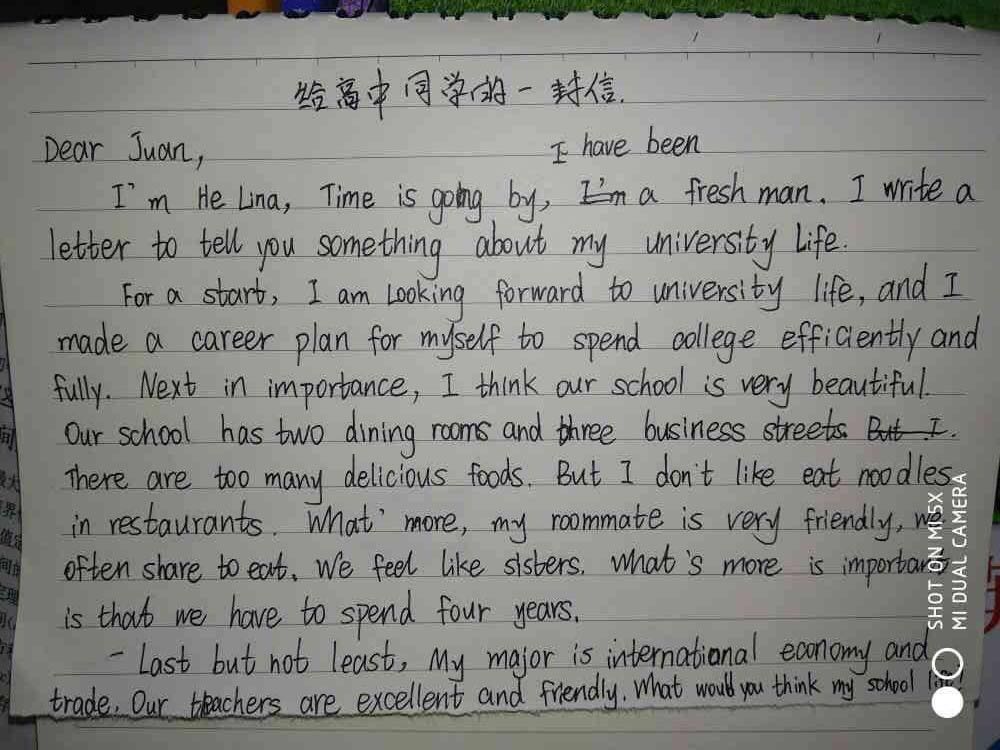 给高中同学的一封信.
Dear Juan,
I have been
I'm He Lina, Time is going by, I'm a fresh man. I write a
letter to tell you something about my university Life.
For a start, I am Looking forward to university life, and I
made a career plan for myself to spend college efficiently and
fully. Next in importance, I think our school is very beautiful.
Our school has two dining rooms and three business streets. But I.
There are too many delicious foods. But I don't like eat noodles
in restaurants. What' more, my roommate is very friendly, we
often share to eat. We feel like sisters. What's more is important
is that we have to spend four years.
- Last but not least, My major is international economy and
trade. Our teachers are excellent and friendly. What would you think my school life.
SHOT ON MI5X
MI DUAL CAMERA